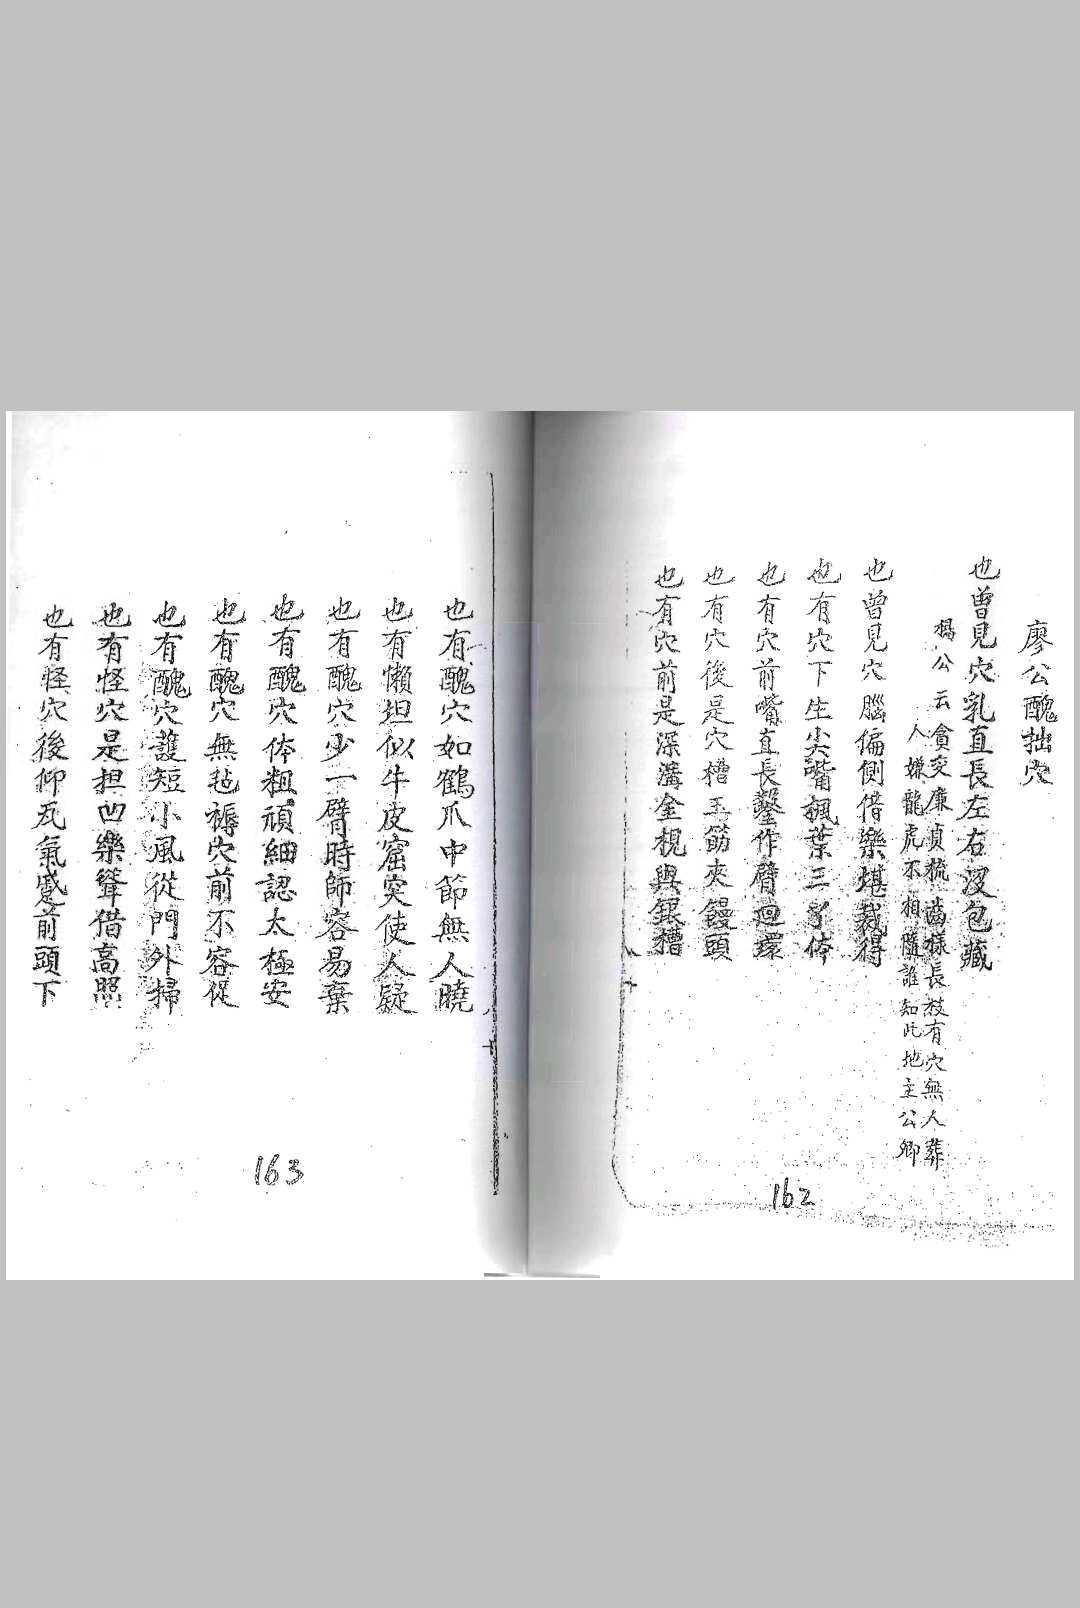 廖公醜拙穴
也曾見穴乳直長左右沒包藏
楊公云貪変廉貞梳齒樣長枝有穴無人葬
人嫌龍虎不相隨誰知此地主公卿
也曾見穴腦偏側借樂堪裁得
也有穴下生尖嘴楓葉三丫体
也有穴前嘴直長鑿作臂迴環
也有穴後是穴槽玉筯夾饅頭
也有穴前是深溝金梘與銀槽
162
也有醜穴如鶴爪中節無人曉
也有懶坦似牛皮窟突使人疑
也有醜穴少一臂時師容易棄
也有醜穴体粗頑細認太極安
也有醜穴無毡褥穴前不容促
也有醜穴護短小風從門外掃
也有怪穴是担凹樂聳借高照
也有怪穴後仰瓦氣蹙前頭下
163